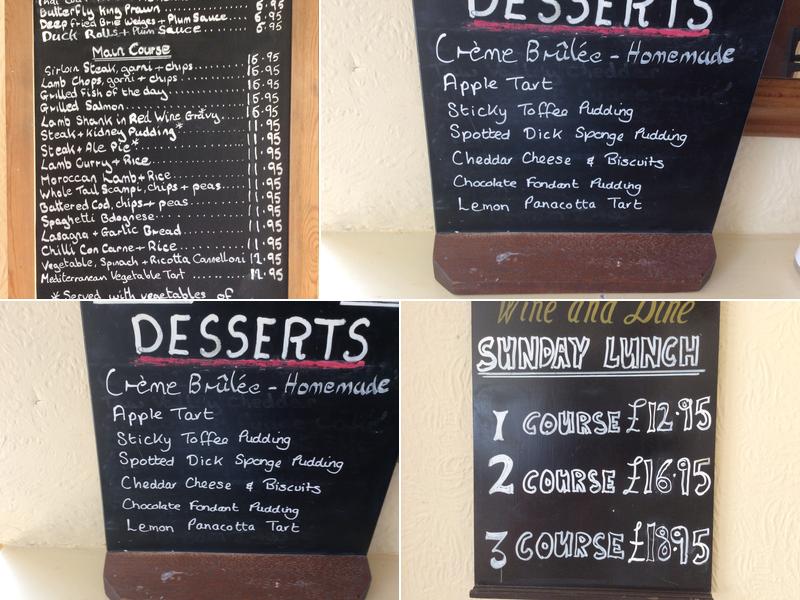 Butterfly King Prawn ......... 6.95
Deep Fried Brie Wedges + Plum Sauce ... 6.95
Duck Rolls + Plum Sauce ...... 6.95
Main Course
Sirloin Steak, garni + chips ....... 16.95
Lamb Chops, garni + chips ......... 16.95
Grilled Fish of the day ......... 16.95
Grilled Salmon ......... 16.95
Lamb Shank in Red Wine Gravy* .... 16.95
Steak + Kidney Pudding* ......... 11.95
Steak + Ale Pie* ......... 11.95
Lamb Curry + Rice ......... 11.95
Moroccan Lamb + Rice ......... 11.95
Whole Tail Scampi, chips + peas .... 11.95
Battered Cod, chips + peas ......... 11.95
Spaghetti Bolognese ......... 11.95
Lasagna + Garlic Bread ......... 11.95
Chilli Con Carne + Rice ......... 11.95
Vegetable, Spinach + Ricotta Cannelloni 12.95
Mediterranean Vegetable Tart ....... 12.95
* Served with vegetables of
DESSERTS
Crème Brûlée - Homemade
Apple Tart
Sticky Toffee Pudding
Spotted Dick Sponge Pudding
Cheddar Cheese & Biscuits
Chocolate Fondant Pudding
Lemon Panacotta Tart
DESSERTS
Crème Brûlée - Homemade
Apple Tart
Sticky Toffee Pudding
Spotted Dick Sponge Pudding
Cheddar Cheese & Biscuits
Chocolate Fondant Pudding
Lemon Panacotta Tart
Wine and Dine
SUNDAY LUNCH
1 COURSE £12.95
2 COURSE £16.95
3 COURSE £18.95